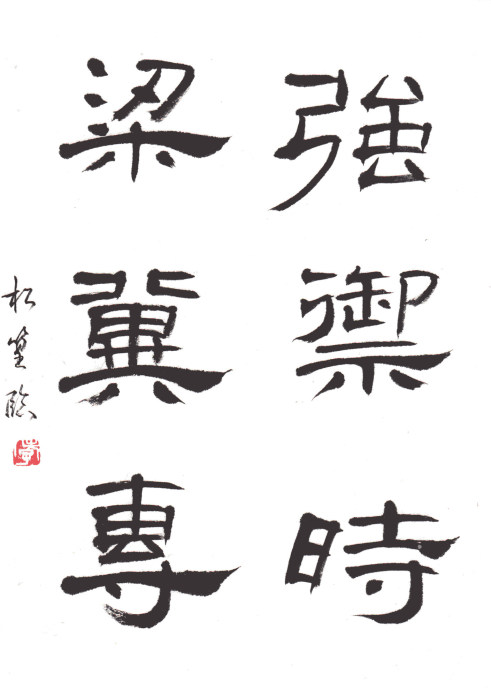 強禦時
梁冀專
松臨